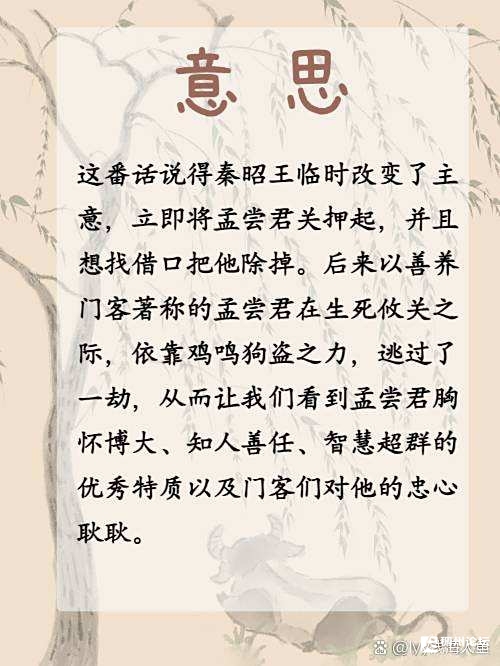 意思
这番话说得秦昭王临时改变了主
意，立即将孟尝君关押起，并且
想找借口把他除掉。后来以善养
门客著称的孟尝君在生死攸关之
际，依靠鸡鸣狗盗之力，逃过了
一劫，从而让我们看到孟尝君胸
怀博大、知人善任、智慧超群的
优秀特质以及门客们对他的忠心
耿耿。